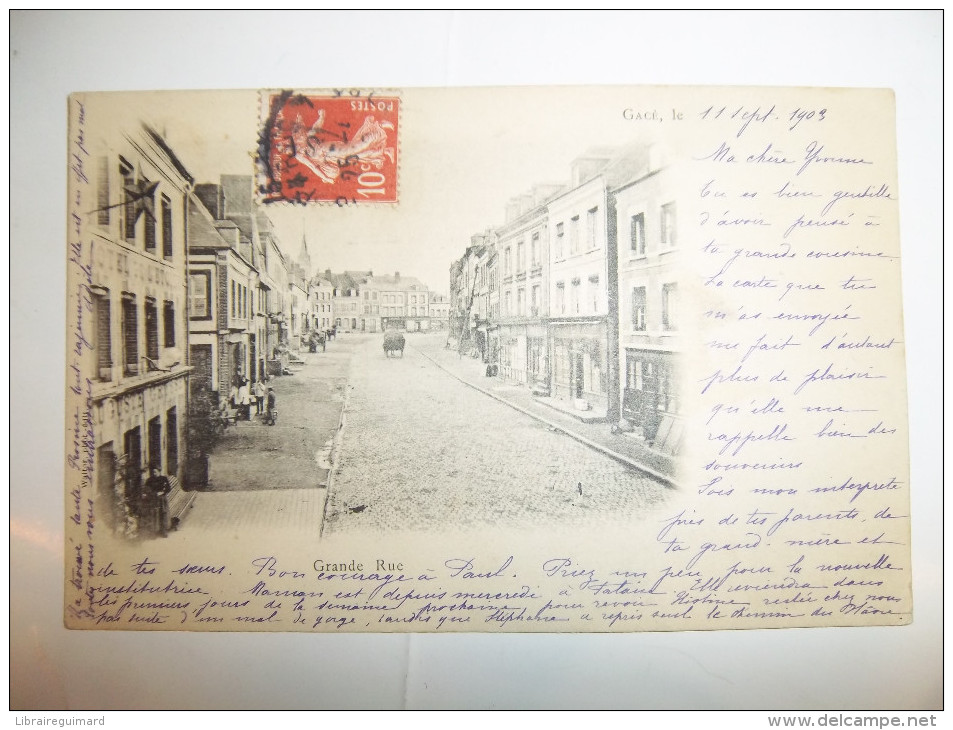 POSTES
10c
GACÉ, le 11 Sept. 1903
Ma chère Yvonne
Tu es bien gentille
d'avoir pensé à
ta grande cousine.
La carte que tu
m'as envoyée
me fait d'autant
plus de plaisir
qu'elle me
rappelle bien des
souvenirs
Sois mon interprète
près de tes parents, de
ta grand-mère et
de tes sœurs. Bon courage à Paul. Priez un peu pour la nouvelle
institutrice. Maman est depuis mercredi à Elle reviendra dans
les premiers jours de la semaine prochaine pour revoir restée chez nous
par suite d'un mal de gorge, tandis que Stéphane a repris seul le chemin du Hâvre
Grande Rue
Libraireguimard
www.delcampe.net